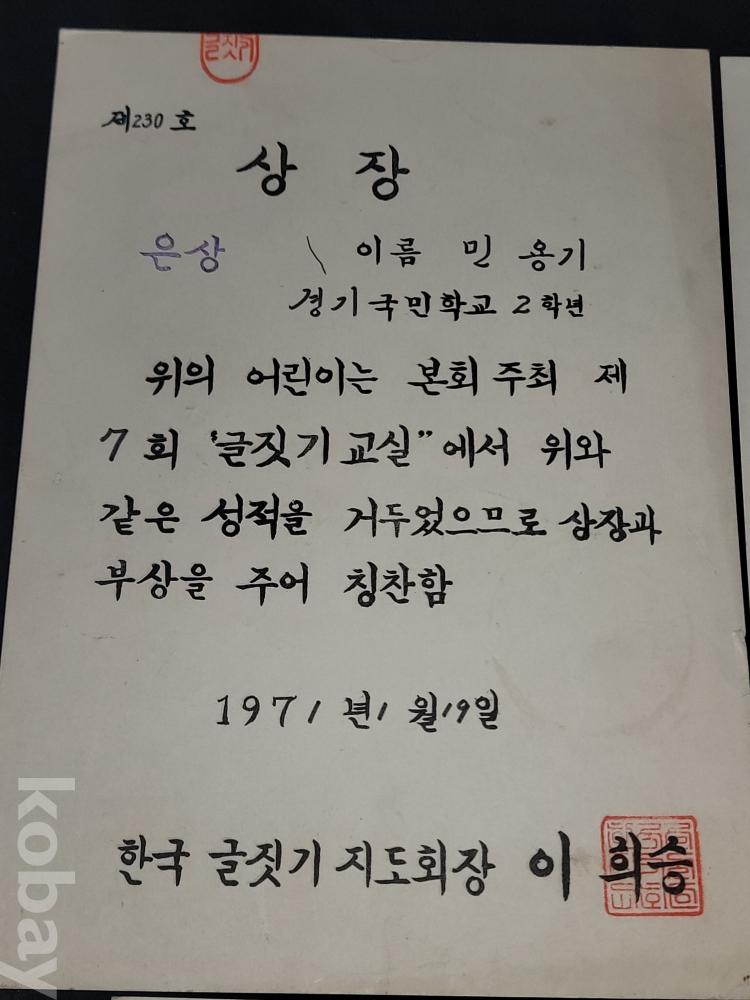 글짓기
제230호
상 장
은상 \ 이름 민 용기
경기국민학교 2학년
위의 어린이는 본회 주최 제
7회 "글짓기 교실"에서 위와
같은 성적을 거두었으므로 상장과
부상을 주어 칭찬함
1971년1월19일
한국 글짓기 지도회장 이희승
kobay